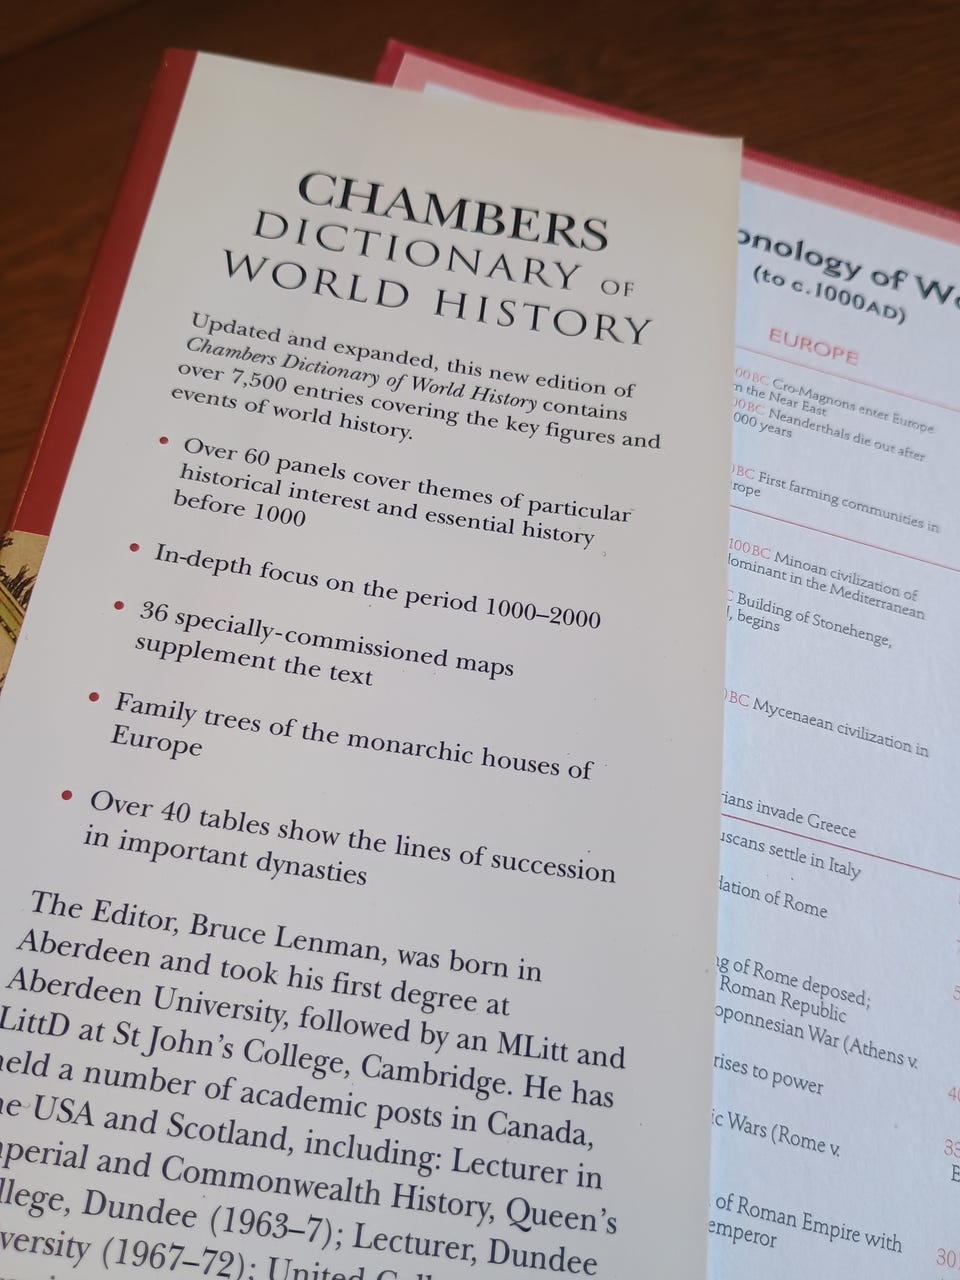 CHAMBERS
DICTIONARY OF
WORLD HISTORY
Updated and expanded, this new edition of
Chambers Dictionary of World History contains
over 7,500 entries covering the key figures and
events of world history.
• Over 60 panels cover themes of particular
historical interest and essential history
before 1000
• In-depth focus on the period 1000–2000
• 36 specially-commissioned maps
supplement the text
• Family trees of the monarchic houses of
Europe
• Over 40 tables show the lines of succession
in important dynasties
The Editor, Bruce Lenman, was born in
Aberdeen and took his first degree at
Aberdeen University, followed by an MLitt and
LittD at St John's College, Cambridge. He has
held a number of academic posts in Canada,
USA and Scotland, including: Lecturer in
and Commonwealth History, Queen's
Dundee (1963–7); Lecturer, Dundee
(1967–72); United
of
(to c.1000AD)
EUROPE
BC Cro-Magnons enter Europe
the Near East
BC Neanderthals die out after
000 years
BC First farming communities in
100BC Minoan civilization of
in the Mediterranean
Building of Stonehenge,
begins
BC Mycenaean civilization in
invade Greece
settle in Italy
of Rome
of Rome deposed;
Roman Republic
War (Athens v.
rises to power
Wars (Rome v.
of Roman Empire with
emperor